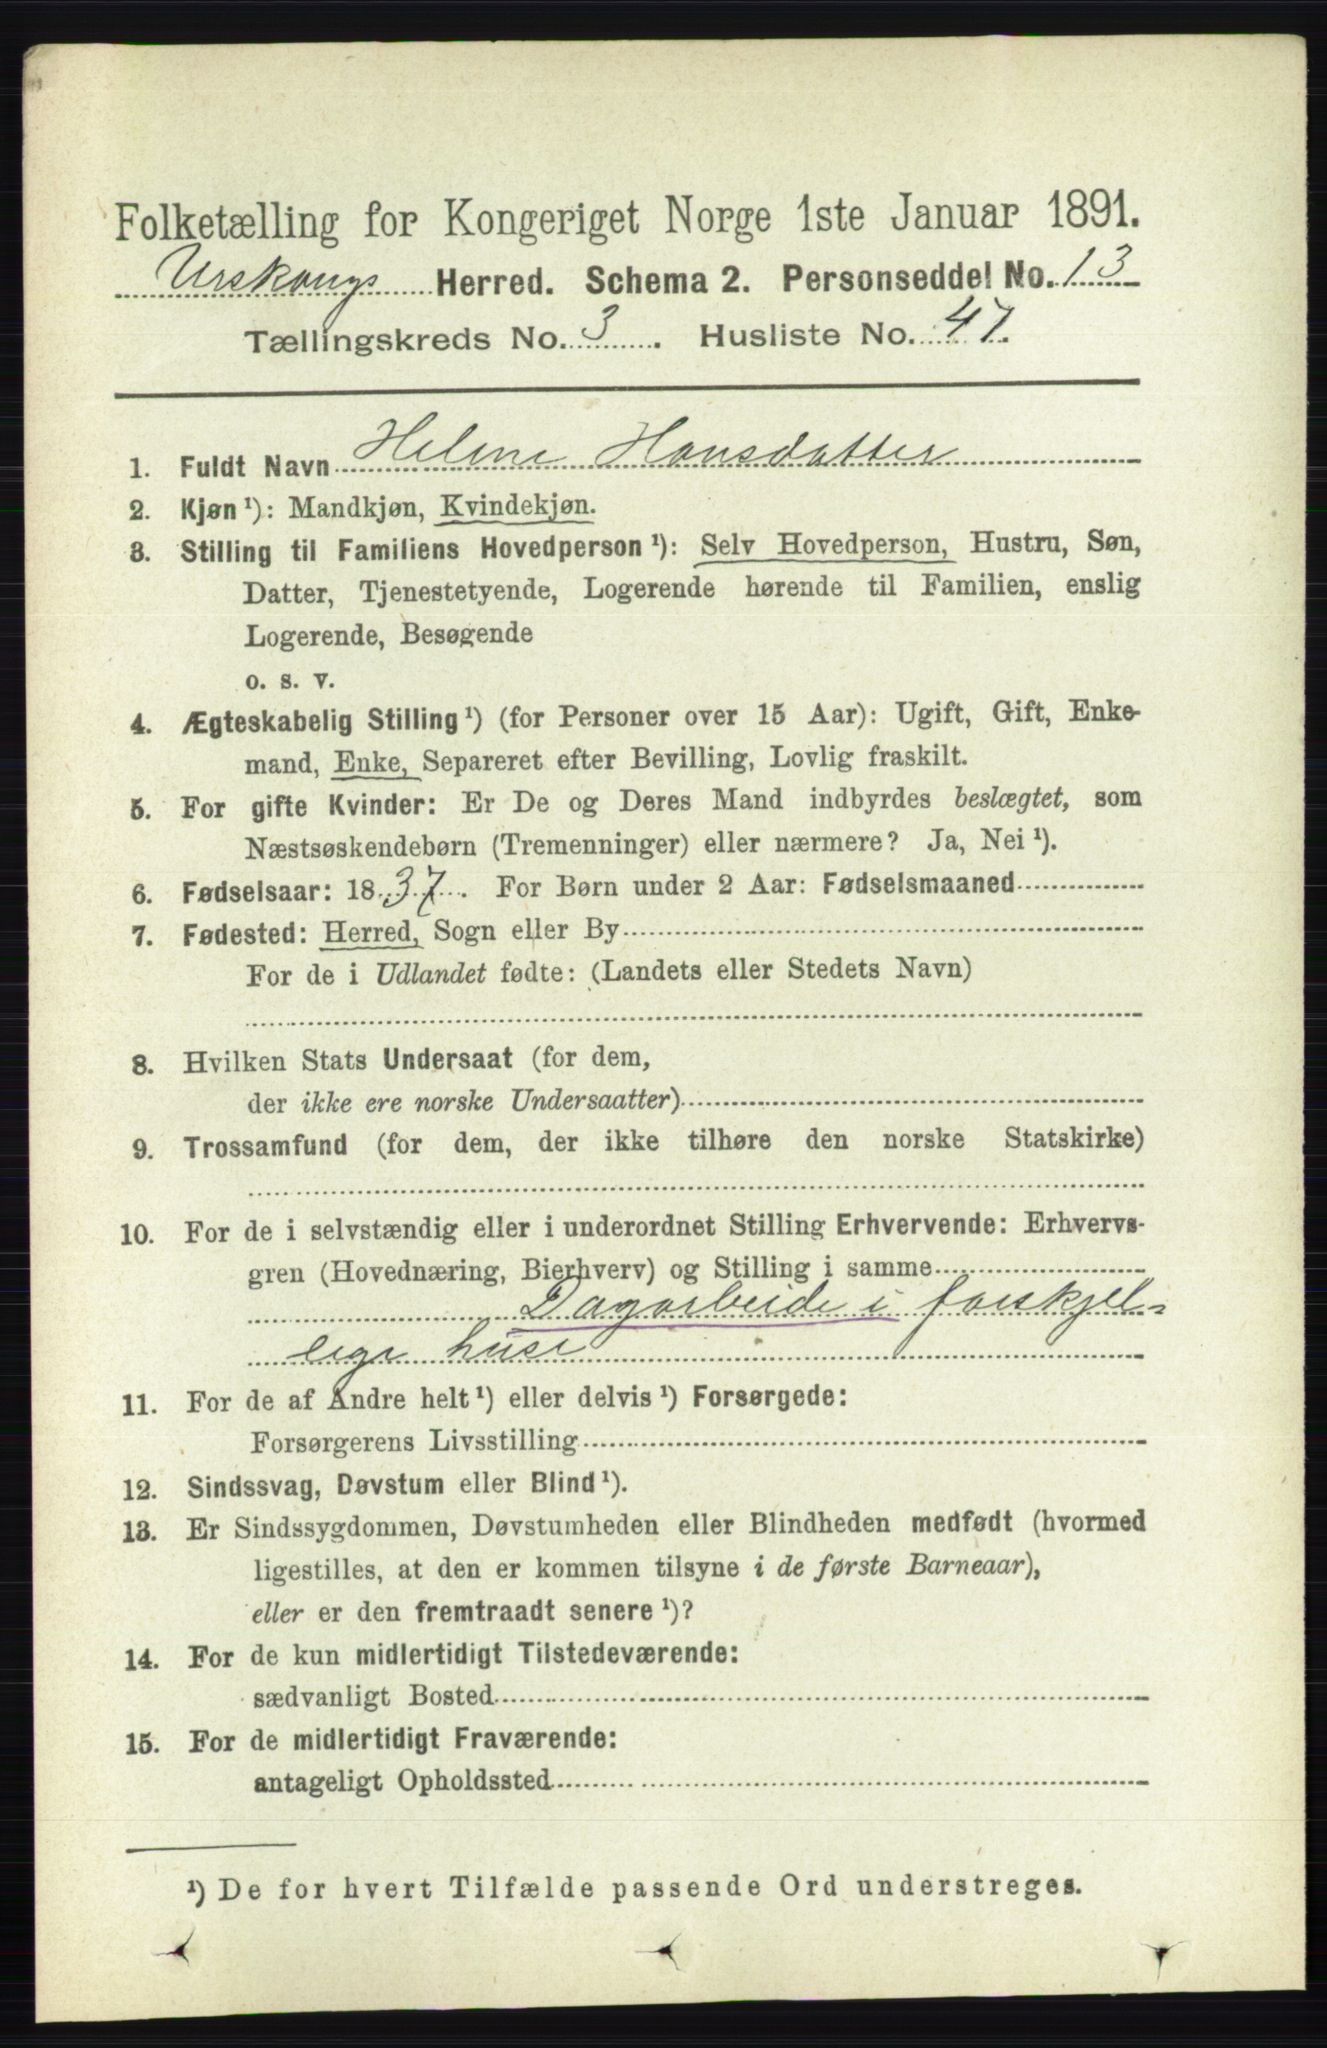 Folketælling for Kongeriget Norge 1ste Januar 1891.
Urskougs Herred. Schema 2. Personseddel No. 13
Tællingskreds No. 3. Husliste No. 47.
1. Fuldt Navn Helene Hansdatter
2. Kjøn ¹): Mandkjøn, Kvindekjøn.
3. Stilling til Familiens Hovedperson ¹): Selv Hovedperson, Hustru, Søn,
Datter, Tjenestetyende, Logerende hørende til Familien, enslig
Logerende, Besøgende
o. s. v.
4. Ægteskabelig Stilling ¹) (for Personer over 15 Aar): Ugift, Gift, Enke-
mand, Enke, Separeret efter Bevilling, Lovlig fraskilt.
5. For gifte Kvinder: Er De og Deres Mand indbyrdes beslægtet, som
Næstsøskendebørn (Tremenninger) eller nærmere? Ja, Nei ¹).
6. Fødselsaar: 1837. For Børn under 2 Aar: Fødselsmaaned
7. Fødested: Herred, Sogn eller By
For de i Udlandet fødte: (Landets eller Stedets Navn)
8. Hvilken Stats Undersaat (for dem,
der ikke ere norske Undersaatter)
9. Trossamfund (for dem, der ikke tilhøre den norske Statskirke)
10. For de i selvstændig eller i underordnet Stilling Erhvervende: Erhvervs-
gren (Hovednæring, Bierhverv) og Stilling i samme
Dagarbeide i forskjel-
lige huse
11. For de af Andre helt ¹) eller delvis ¹) Forsørgede:
Forsørgerens Livsstilling
12. Sindssvag, Døvstum eller Blind ¹).
13. Er Sindssygdommen, Døvstumheden eller Blindheden medfødt (hvormed
ligestilles, at den er kommen tilsyne i de første Barneaar),
eller er den fremtraadt senere ¹)?
14. For de kun midlertidigt Tilstedeværende:
sædvanligt Bosted
15. For de midlertidigt Fraværende:
antageligt Opholdssted
¹) De for hvert Tilfælde passende Ord understreges.